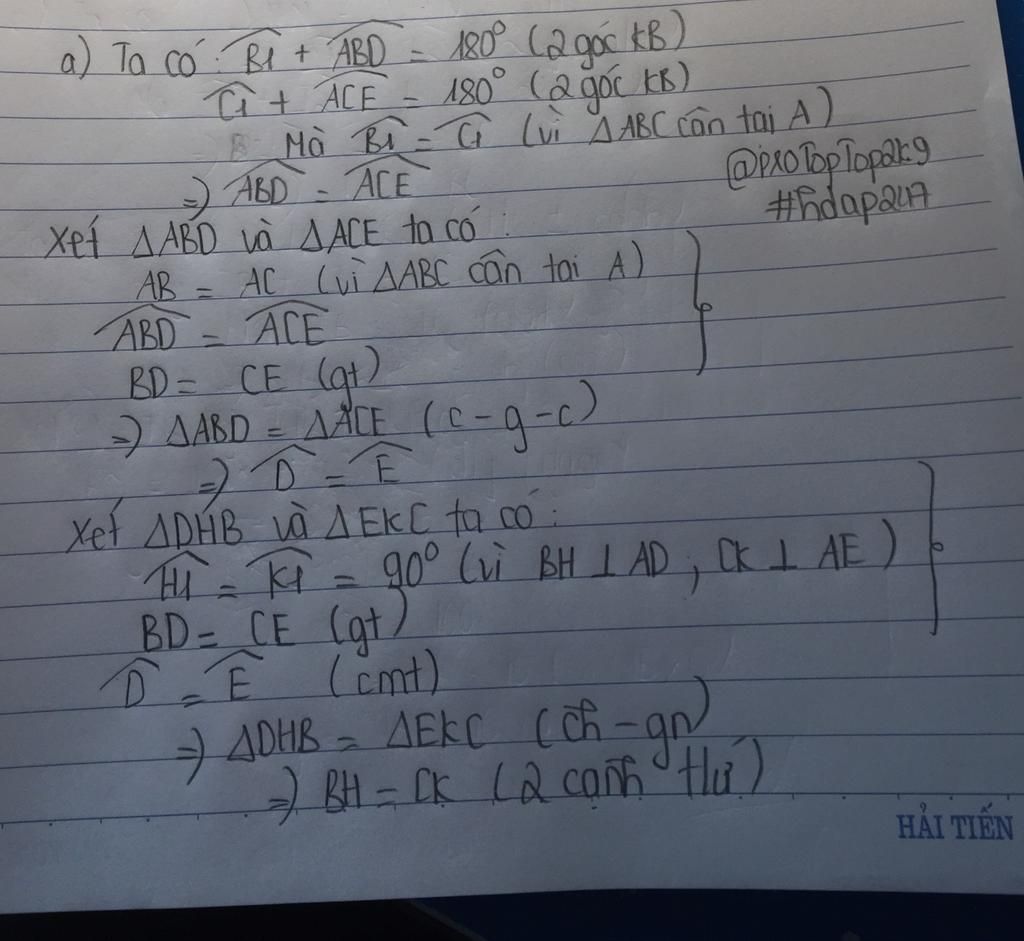 a) Ta có: B1 + ABD = 180° (2 góc kB)
C1 + ACE = 180° (2 góc kB)
Mà B1 = C1 (vì ΔABC cân tai A)
=) ABD = ACE
@proTopTop2k9
#hdap247
Xét ΔABD và ΔACE ta có:
AB = AC (vì ΔABC cân tai A)
ABD = ACE
BD = CE (gt)
=) ΔABD = ΔACE (c-g-c)
=) D = E
Xét ΔDHB và ΔEKC ta có:
H1 = K1 = 90° (vì BH ⊥ AD ; CK ⊥ AE)
BD = CE (gt)
D = E (cmt)
=) ΔDHB = ΔEKC (ch-gn)
=) BH = CK (2 cạnh tư)
HẢI TIẾN